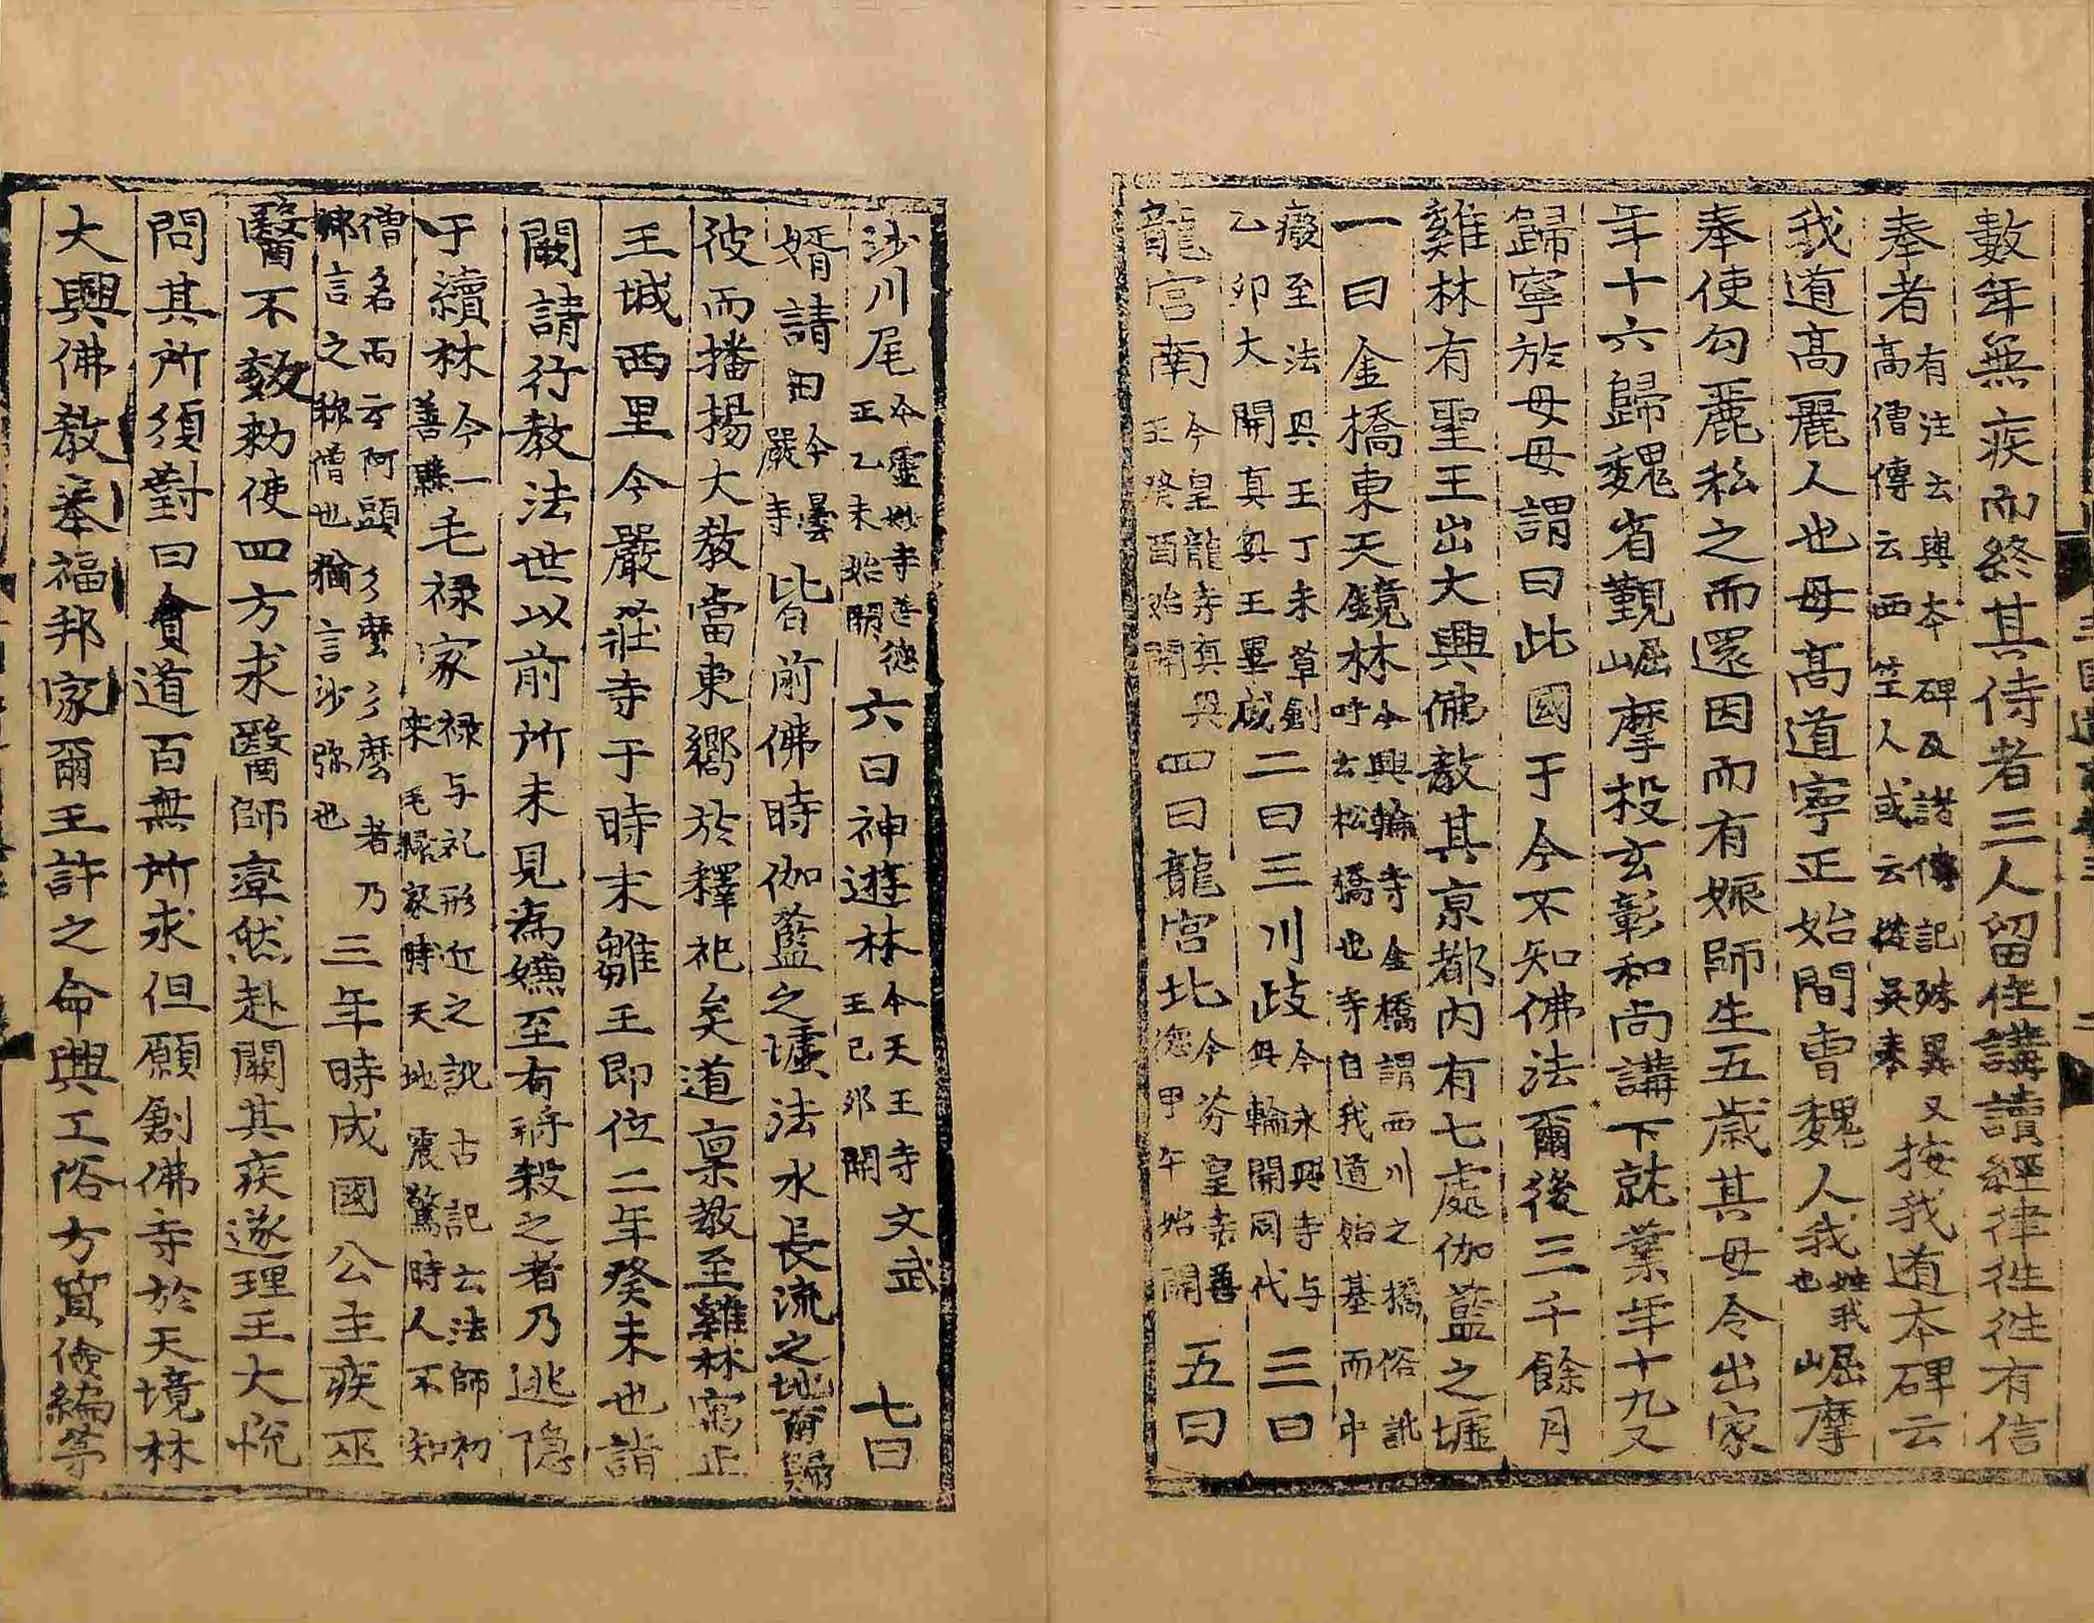 數年無疾而終其侍者三人留住講讀經律徃徃有信
奉者有注云與本碑及諸傳記殊異又
高僧傳云西竺人或云從吳來按我道本碑云
我道高麗人也母髙道寧正始間曺魏人我姓我
也崛摩
奉使勾麗私之而還因而有娠師生五歲其母令出家
年十六歸魏省覲崛摩投玄彰和尚講下就業年十九又
歸寧於母母謂曰此國于今不知佛法爾後三千餘月
雞林有聖王出大興佛敎其京都内有七處伽藍之墟
一曰金橋東天鏡林今興輪寺金橋謂西川之橋俗訛
呼云松橋也寺自我道始基而中
癈至法興王丁未草創
乙卯大開真興王畢成二曰三川歧今永興寺与
興輪開同代三曰
龍宮南今皇龍寺真興
王癸酉始開四曰龍宮北今芬皇寺善
德甲午始開五曰
沙川尾今靈妙寺善德
王乙未始開六曰神遊林今天王寺文武
王己卯開七曰
婿請田今曇
嚴寺皆前佛時伽藍之墟法水長流之地爾歸
彼而播揚大敎當東嚮於釋祀矣道禀敎至雞林寓止
王城西里今嚴莊寺于時未雛王即位二年癸未也詣
闕請行敎法世以前所未見爲嫌至有將殺之者乃逃隱
于續林今一
善縣毛禄家禄与礼形近之訛古記云法師初
来毛禄家時天地震驚時人不知
僧名而云阿頭彡麽彡麽者乃
鄉言之稱僧也猶言沙弥也三年時成國公主疾巫
醫不效勑使四方求醫師率然赴闕其疾遂理王大悅
問其所須對曰貧道百無所求但願創佛寺於天境林
大興佛敎奉福邦家爾王許之命興工俗方質儉編茅